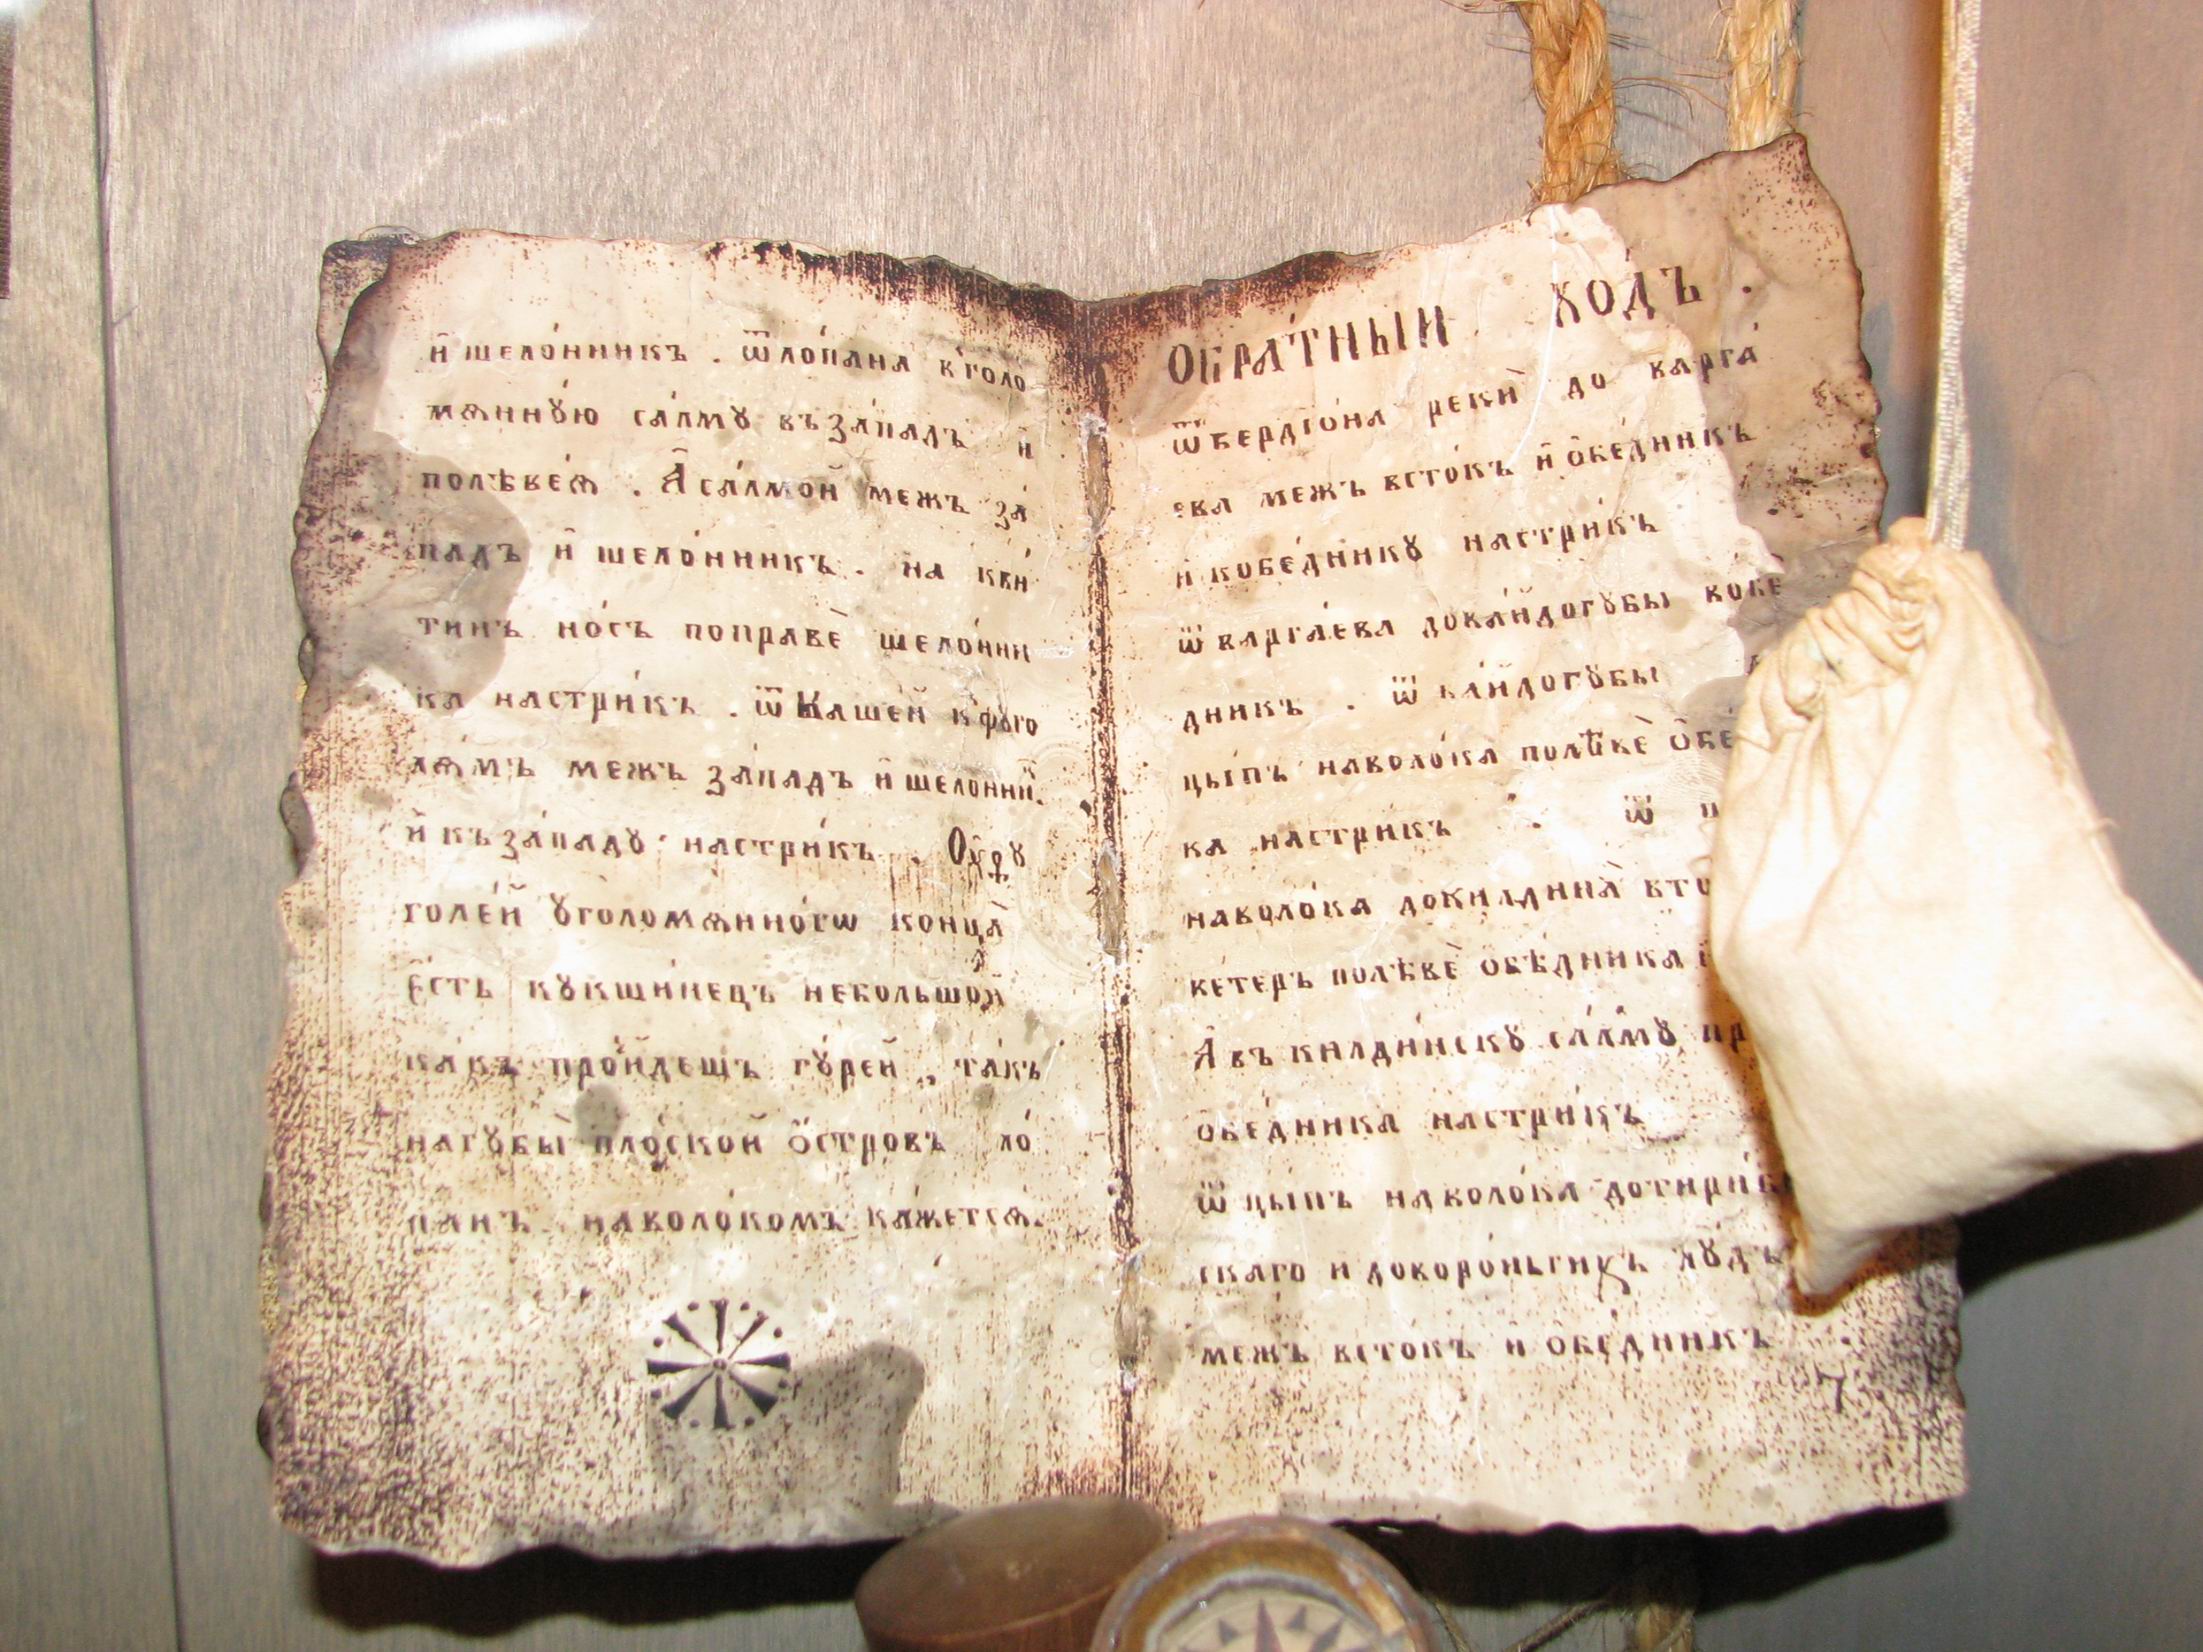 и҆ шело́нникъ . ѿло́пана к'голо
мѧннꙋ́ю са́лмꙋ въза́падъ и҆
полѣвѐѧ . А҆ са́лмой межъ за́
падъ и҆ шело́нникъ . на кви́
тинъ но́съ поправѐ шело́нни
ка настри́къ . ѿ Кашей к'
лѧ́мъ межъ за́падъ и҆ шелонни҆.
и҆ къза́падꙋ настри́къ .
голе́й ꙋголомѧнно́гѡ конца̀
Е҆сть кꙋкши́нецъ небольшой
ка́къ про́йдешъ го́рей , та́къ
нагꙋбы̀ пло́ской о҆́стровъ ло́
панъ наволо́комъ ка́жетсѧ.
ОБРА́ТНЫИ ХО́ДЪ .
ѿберлго́на рекѝ до варга́
ева межъ всто́къ и҆ о҆бе́дникъ
и҆ кобе́дникꙋ настри́къ
ѿ варга́ева дока́йдогꙋбы кобе
дникъ . ѿ ка́йдогꙋбы
цы́пъ наволо́ка полѣвѐ о҆бе́
ка настри́къ . ѿ
наволо́ка докилдина̀
ве́теръ полѣвѐ о҆бѣ́дника
А҆ въ килди́нскꙋ са́лмꙋ
о҆бе́дника настри́къ
ѿ цы́пъ наволо́ка
скаго и
межъ всто́къ и҆ о҆бе́дникъ